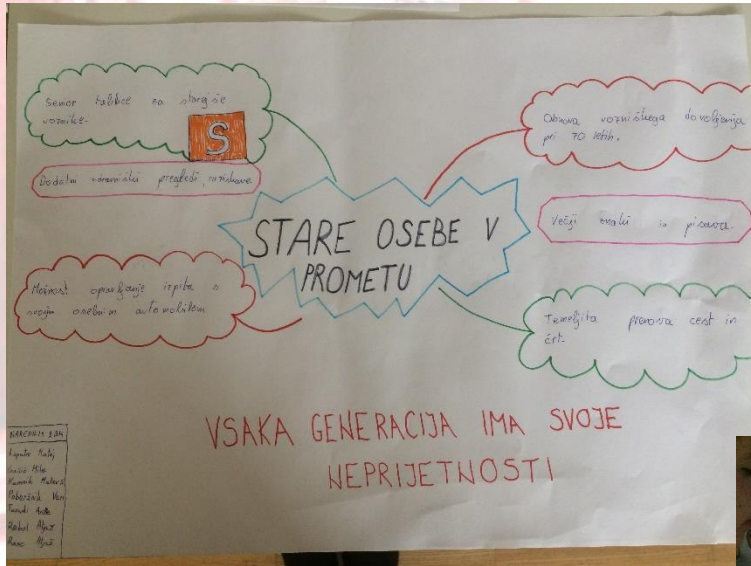 Senior tablice za starejše
voznike.
S
Dodatni zdravniški pregledi, raziskave
Možnost opravljanje izpita s
svojim osebnim avtomobilom
STARE OSEBE V
PROMETU
Obnova vozniškega dovoljenja
pri 70 letih.
Večji znaki in pisava.
Temeljita prenova cest in
črt.
VSAKA GENERACIJA IMA SVOJE
NEPRIJETNOSTI
NAREDILI
Matej
Miha
Kumnik
Aljaž